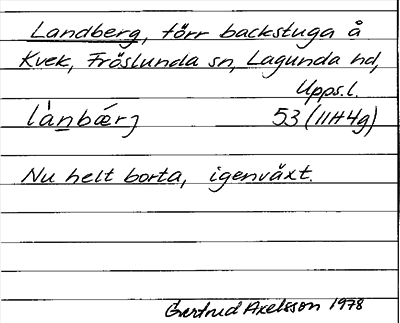 Landberg, förr backstuga å
Kvek, Fröslunda sn, Lagunda hd,
Upps.l.
là̱nbǽrj 53 (11H4g)
Nu helt borta, igenväxt.
Gertrud Axelsson 1978